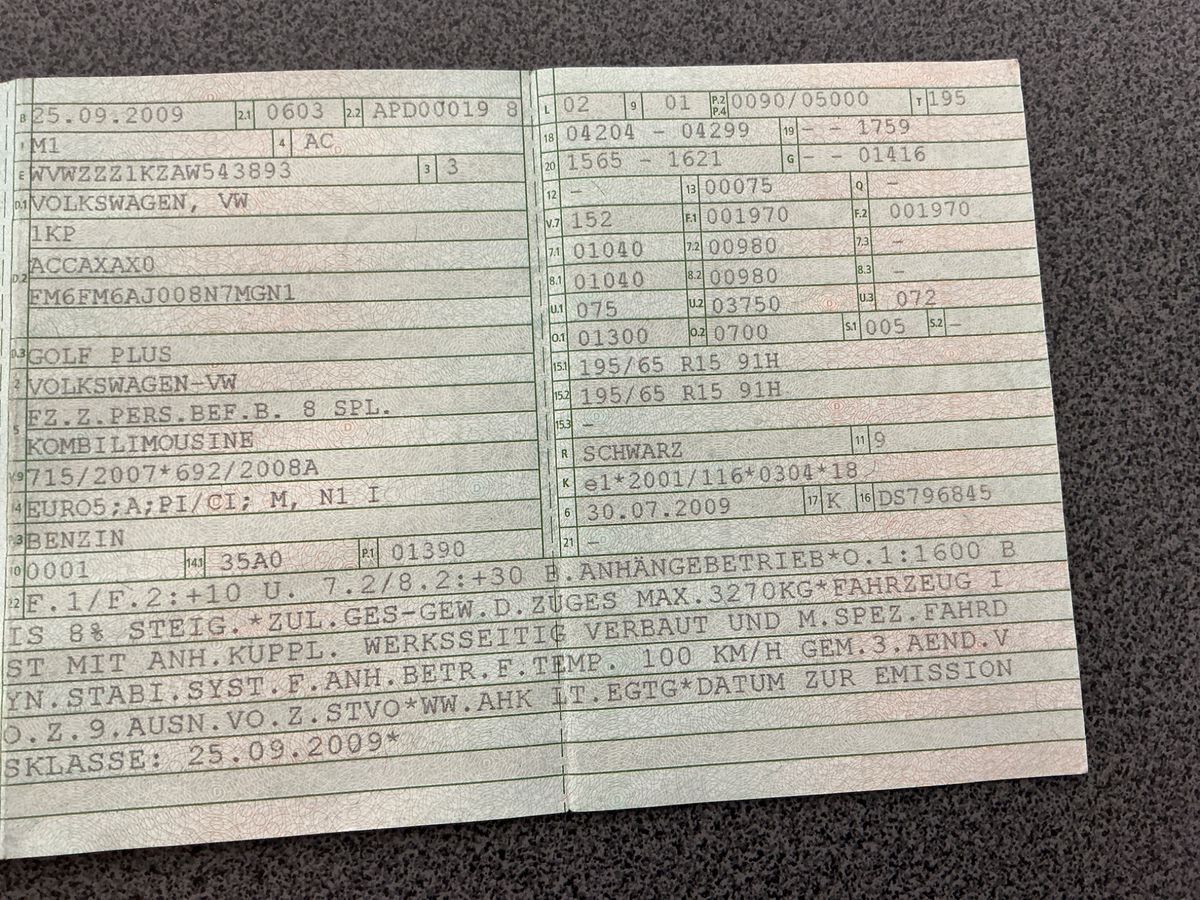 B 25.09.2009 2.1 0603 2.2 APD00019 8
J M1 4 AC
E WVWZZZ1KZAW543893 3 3
D.1 VOLKSWAGEN, VW
1KP
D.2 ACCAXAX0
FM6FM6AJ008N7MGN1
D.3 GOLF PLUS
2 VOLKSWAGEN-VW
FZ.Z.PERS.BEF.B. 8 SPL.
5 KOMBILIMOUSINE
V.9 715/2007*692/2008A
14 EURO5;A;PI/CI; M, N1 I
P.3 BENZIN
10 0001 14.1 35A0 P.1 01390
L 02 9 01 P.2 P.4 0090/05000 T 195
18 04204 - 04299 19 - - 1759
20 1565 - 1621 G - - 01416
12 - 13 00075 Q -
V.7 152 F.1 001970 F.2 001970
7.1 01040 7.2 00980 7.3 -
8.1 01040 8.2 00980 8.3 -
U.1 075 U.2 03750 U.3 072
O.1 01300 O.2 0700 S.1 005 S.2 -
15.1 195/65 R15 91H
15.2 195/65 R15 91H
15.3 -
R SCHWARZ 11 9
K e1*2001/116*0304*18
6 30.07.2009 17 K 16 DS796845
21 -
22 F.1/F.2:+10 U. 7.2/8.2:+30 B.ANHÄNGEBETRIEB*O.1:1600 B
IS 8% STEIG.*ZUL.GES-GEW.D.ZUGES MAX.3270KG*FAHRZEUG I
ST MIT ANH.KUPPL. WERKSSEITIG VERBAUT UND M.SPEZ.FAHRD
YN.STABI.SYST.F.ANH.BETR.F.TEMP. 100 KM/H GEM.3.AEND.V
O.Z.9.AUSN.VO.Z.STVO*WW.AHK LT.EGTG*DATUM ZUR EMISSION
SKLASSE: 25.09.2009*